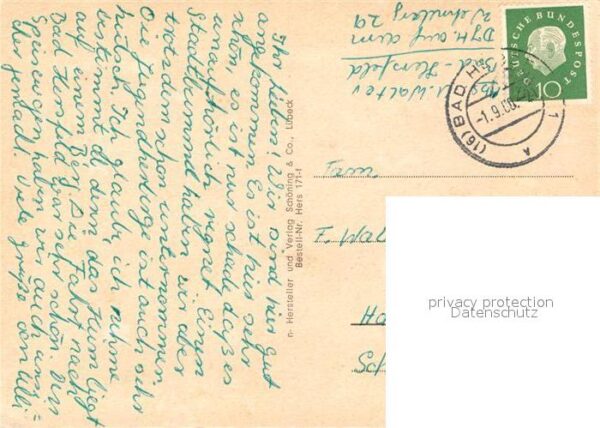 Ihr Lieben! Wir sind hier gut
angekommen. Es ist hier sehr
schön es ist nur schade daß es
unaufhörlich regnet. Einen
Stadtbummel haben wir aber
trotzdem schon unternommen
Die Jugendherberge ist auch sehr
hübsch. Ich glaube, ich nehme
bestimmt ab denn das Heim liegt
auf einem Berg. Die Fahrt nach
Bad Hersfeld war sehr schön. Im
Speisewagen haben wir auch uns=
Viele Grüße
n- Hersteller und Verlag Schöning & Co., Lübeck
Bestell-Nr. Hers 171-f
Walter
Hersfeld
DJH auf dem
Wehneberg 29
DEUTSCHE BUNDESPOST
10
(16) BAD H
-1.9.60
1
A
privacy protection
Datenschutz